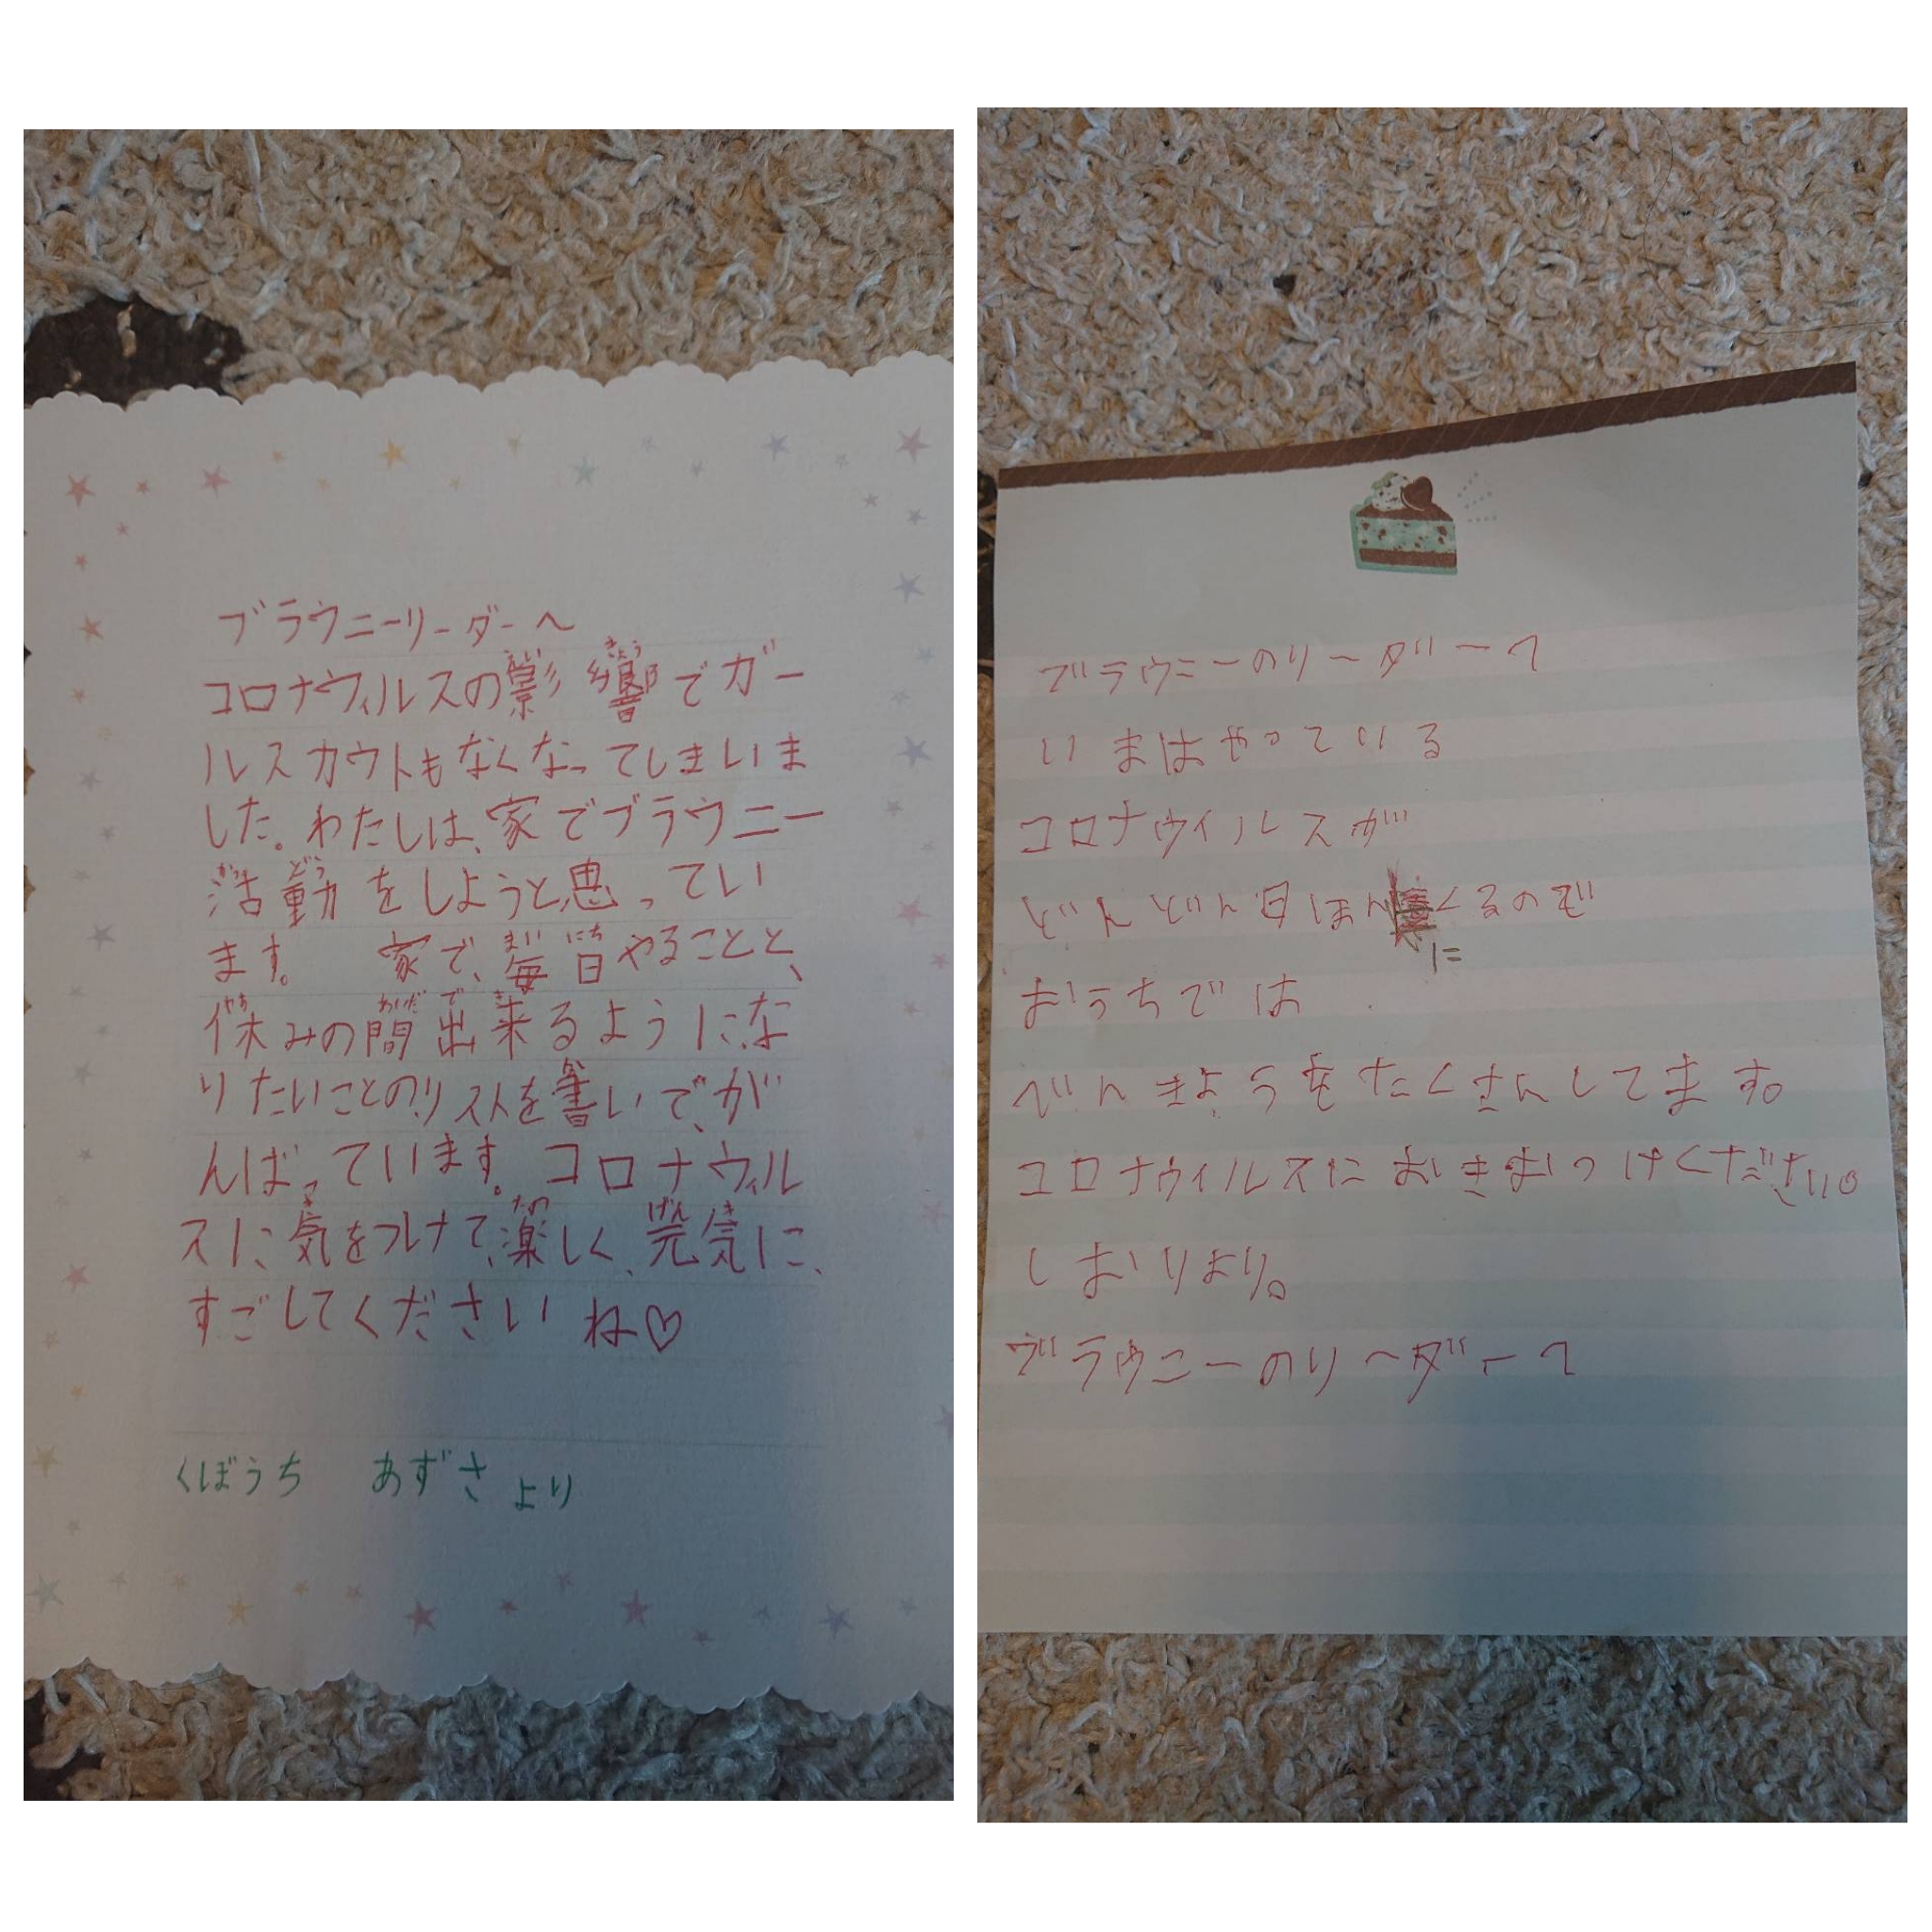 ブラウニーリーダーへ
コロナウィルスの影響でガー
ルスカウトもなくなってしまいま
した。わたしは、家でブラウニー
活動をしようと思ってい
ます。 家で、毎日やることと、
休みの間出来るようにな
りたいことのリストを書いて、が
んばっています。コロナウィル
スに気をつけて、楽しく、元気に、
すごしてくださいね♡
くぼうち あずさより
ブラウニーのリーダーへ
いまはやっている
コロナウイルスが
どんどん日ほんにくるので
おうちでは
べんきょうをたくさんしてます。
コロナウィルスにおきおつけください。
しおりより。
ブラウニーのリーダーへ